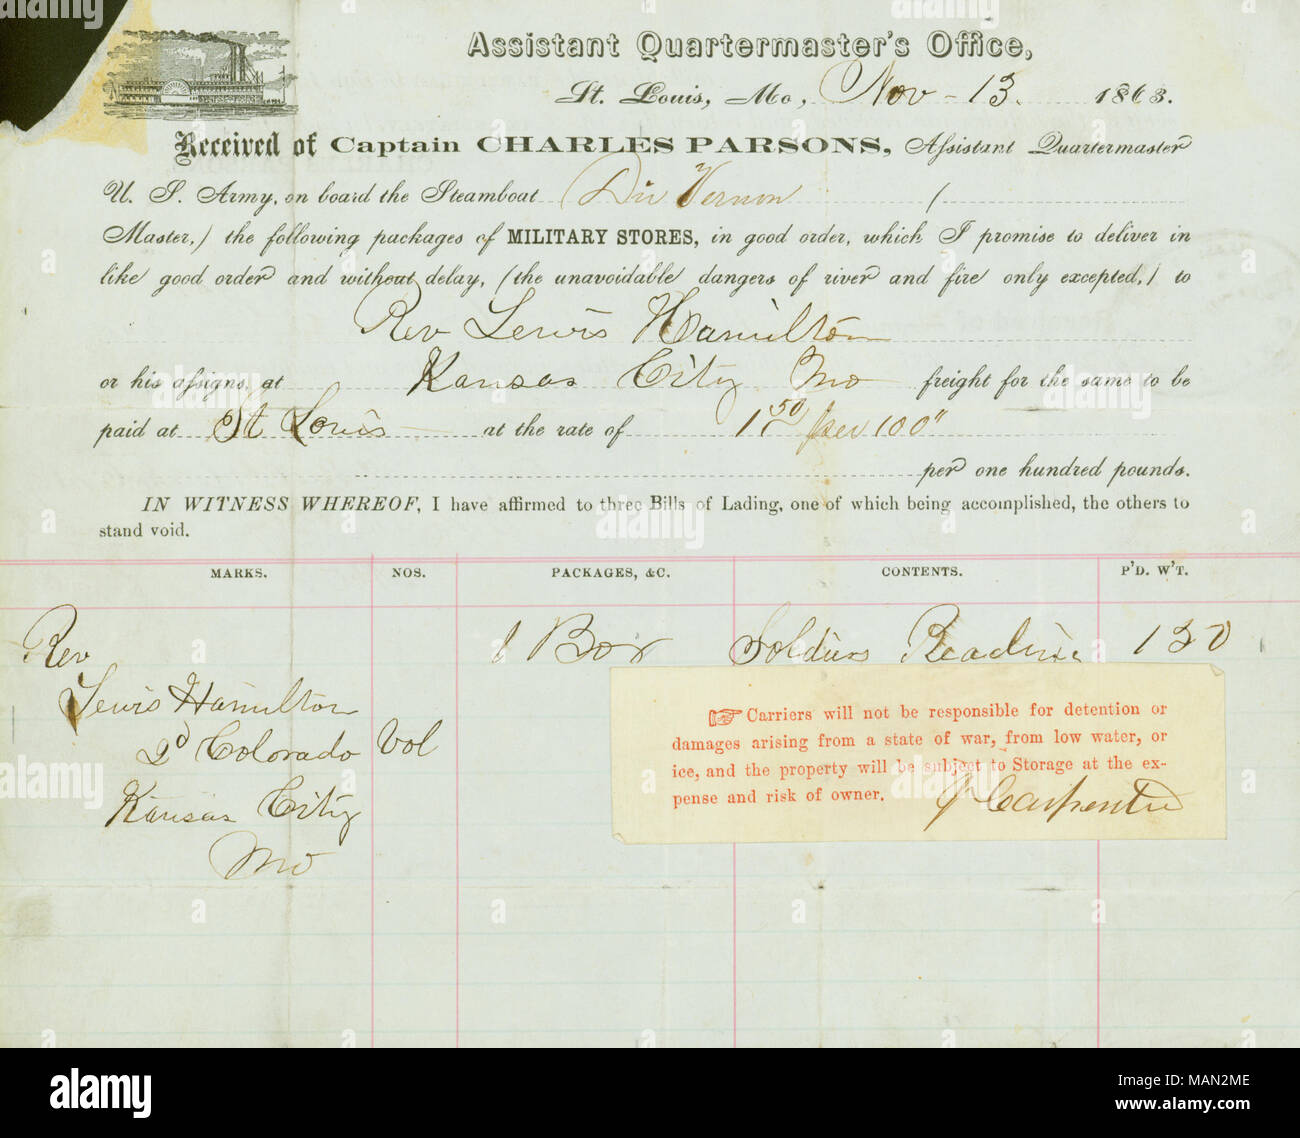 Assistant Quartermaster's Office,
St. Louis, Mo, Nov - 13 1863.
Received of Captain CHARLES PARSONS, Assistant Quartermaster
U. S. Army, on board the Steamboat Die Vernon (
Master,) the following packages of MILITARY STORES, in good order, which I promise to deliver in
like good order and without delay, (the unavoidable dangers of river and fire only excepted,) to
Rev Lewis Hamilton
or his assigns, at Kansas City Mo freight for the same to be
paid at St Louis at the rate of 1.50 per 100"
per one hundred pounds.
IN WITNESS WHEREOF, I have affirmed to three Bills of Lading, one of which being accomplished, the others to
stand void.
MARKS. NOS. PACKAGES, &C. CONTENTS. P'D. W'T.
Rev 1 Box Soldiers Reading 150
Lewis Hamilton
2d Colorado Vol
Kansas City
Mo
☞ Carriers will not be responsible for detention or
damages arising from a state of war, from low water, or
ice, and the property will be subject to Storage at the ex-
pense and risk of owner. J Carpenter
alamy
Image ID: MAN2ME
www.alamy.com